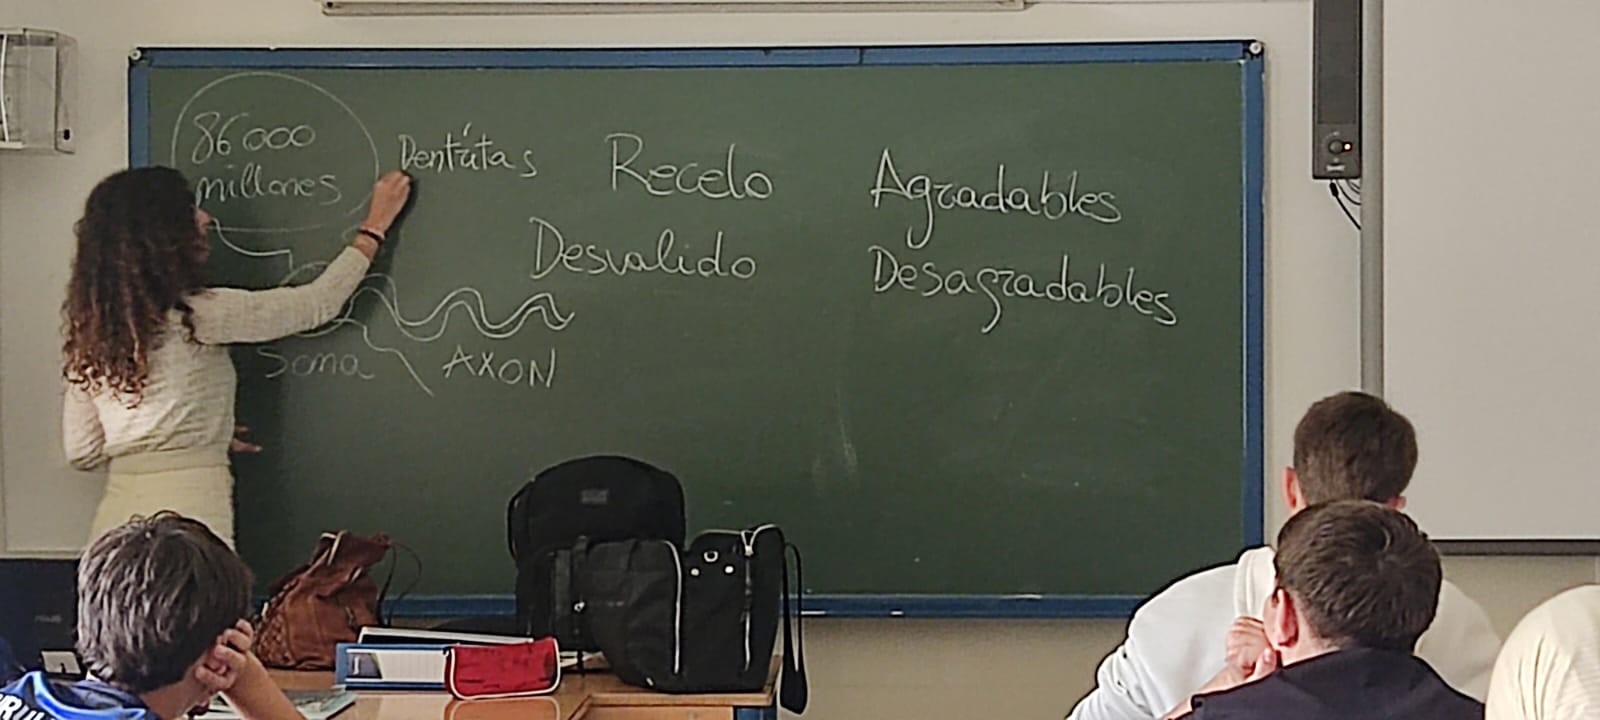 86000
millones
Dentritas
Recelo
Desvalido
Agradables
Desagradables
Soma
AXON